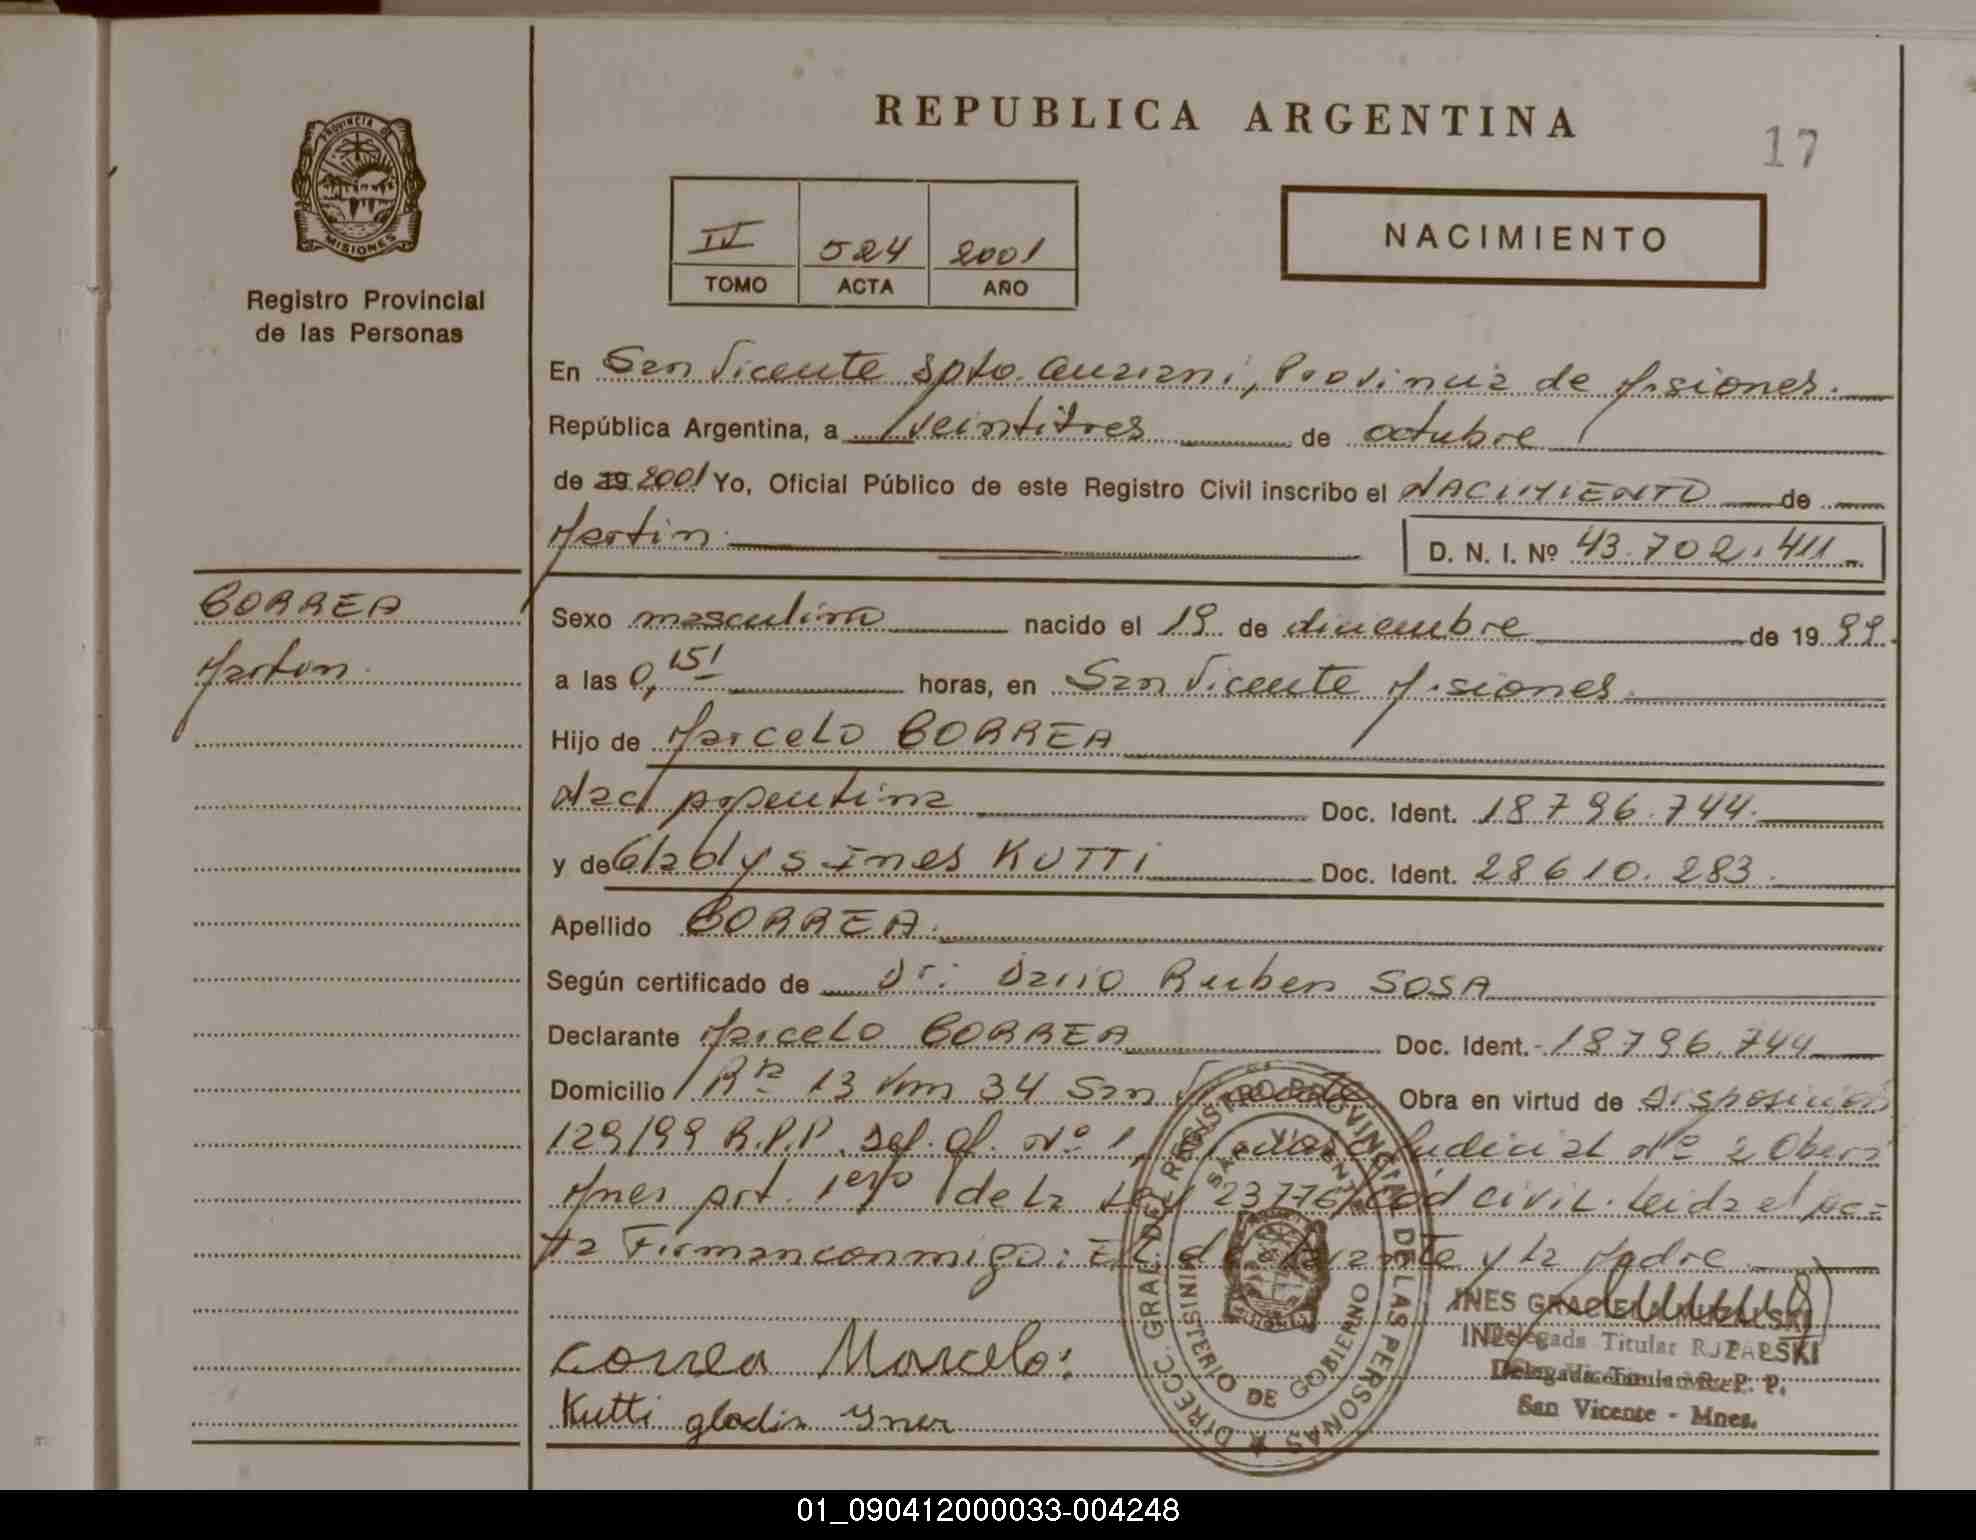 REPUBLICA ARGENTINA
17
PROVINCIA DE
MISIONES
Registro Provincial
de las Personas
IV 524 2001
TOMO ACTA AÑO
NACIMIENTO
En San Vicente Dpto. Guarani, Provincia de Misiones.
República Argentina, a veintitres de octubre
de 19 2001 Yo, Oficial Público de este Registro Civil inscribo el NACIMIENTO de
Martin.
D. N. I. Nº 43.702.411
CORREA
Martin.
Sexo masculino nacido el 19 de diciembre de 19 99.
a las 0,15' horas, en San Vicente Misiones.
Hijo de Marcelo CORREA
Nac argentina Doc. Ident. 18796.744.
y de Gladys Ines KUTTI Doc. Ident. 28610.283.
Apellido CORREA.
Según certificado de Dr. Dario Ruben SOSA
Declarante Marcelo CORREA Doc. Ident. 18796.744
Domicilio Rta 13 Km 34 San Vicente Obra en virtud de Disposición
129/99 R.P.P. Def. Of. Nº 1, Judicial Nº 2 Obera
Mnes art. 1ero de la Ley 23776/Cod civil. Leida el ac=
ta Firman conmigo: El declarante y la Madre.
Correa Marcelo:
Kutti gladis Yner
DIRECC. GRAL. DEL REGISTRO PROVINCIAL DE LAS PERSONAS
SAN VICENTE
MINISTERIO DE GOBIERNO
INES GRACIELA
Delegada Titular R.
Delegada Titular R. P. P.
San Vicente - Mnes.
01_090412000033-004248